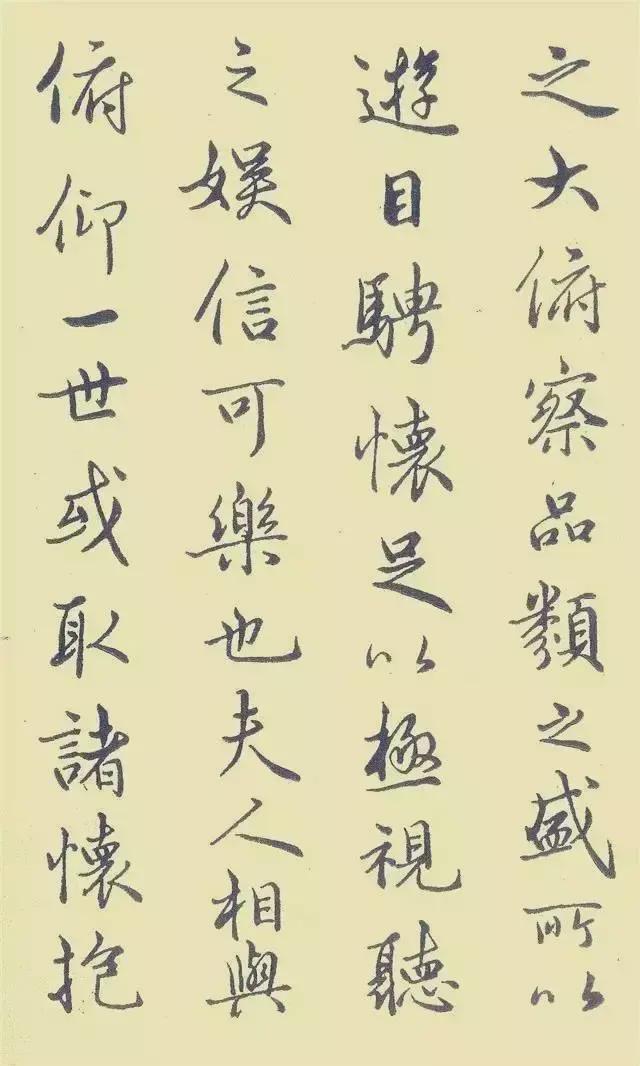 之大俯察品類之盛所以
遊目騁懷足以極視聽
之娛信可樂也夫人相與
俯仰一世或取諸懷抱